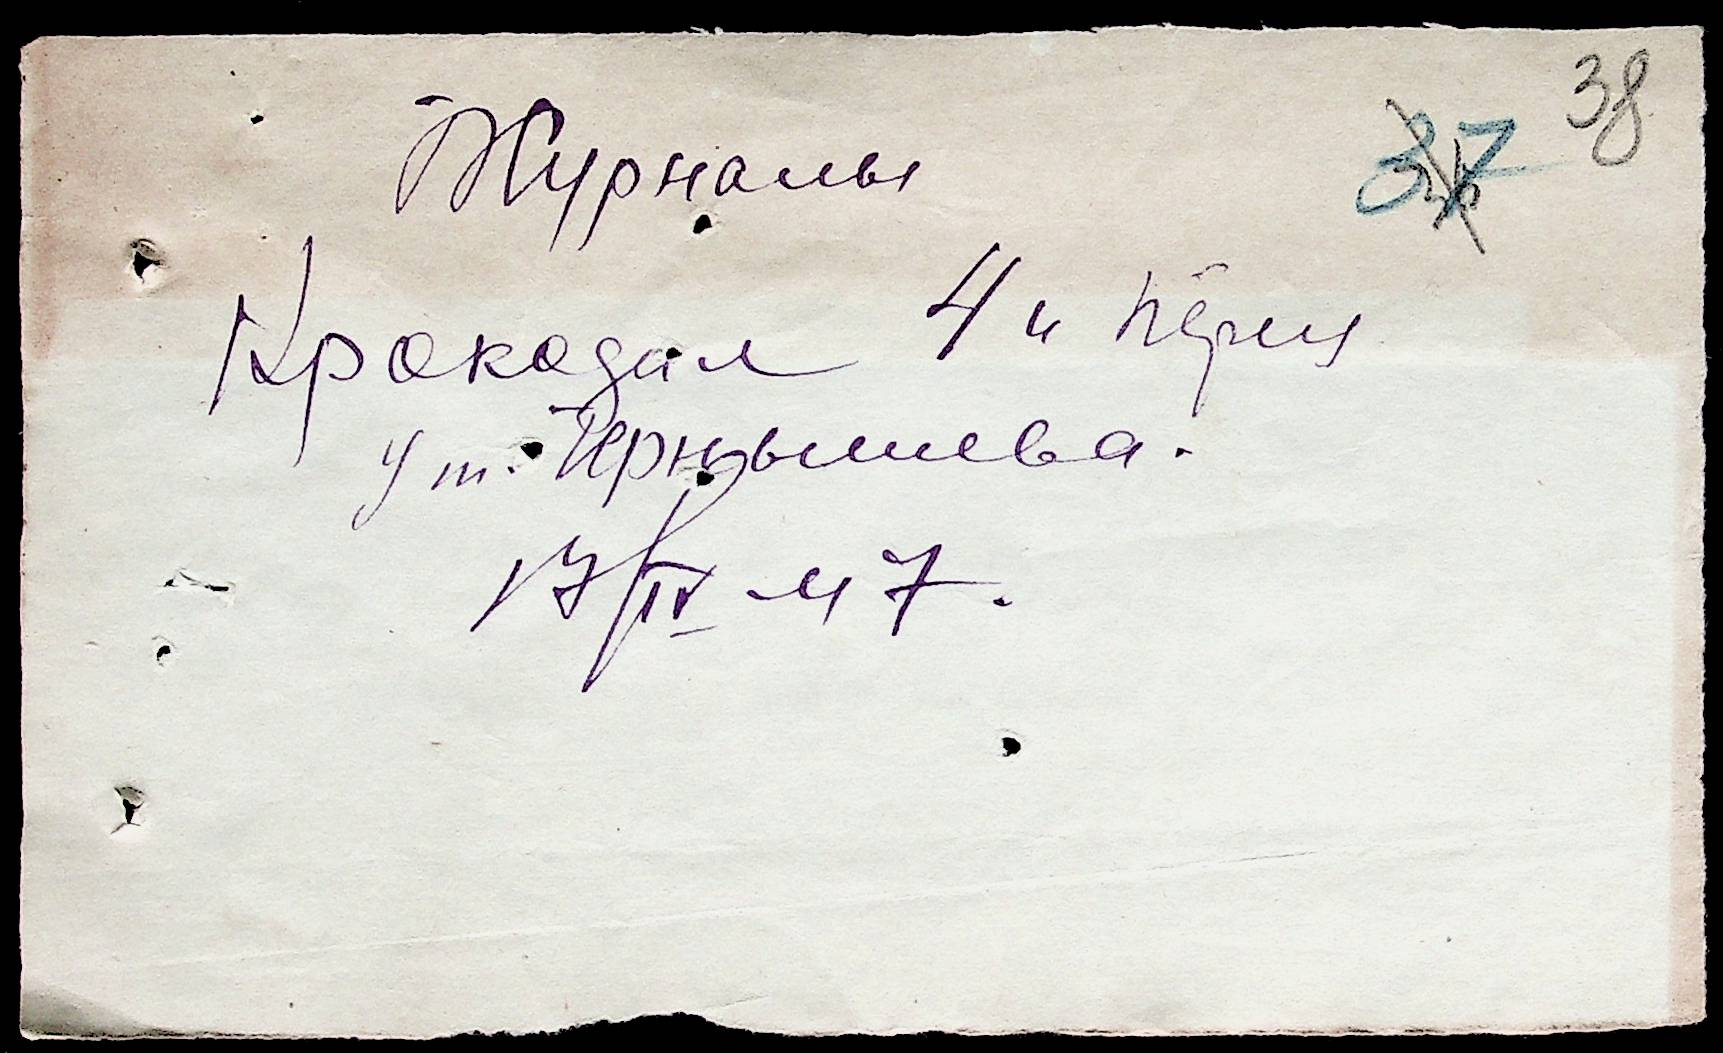 38
37
Журналы
Крокодил 4 и Перец
у т. Чернышева.
17/IV 47.